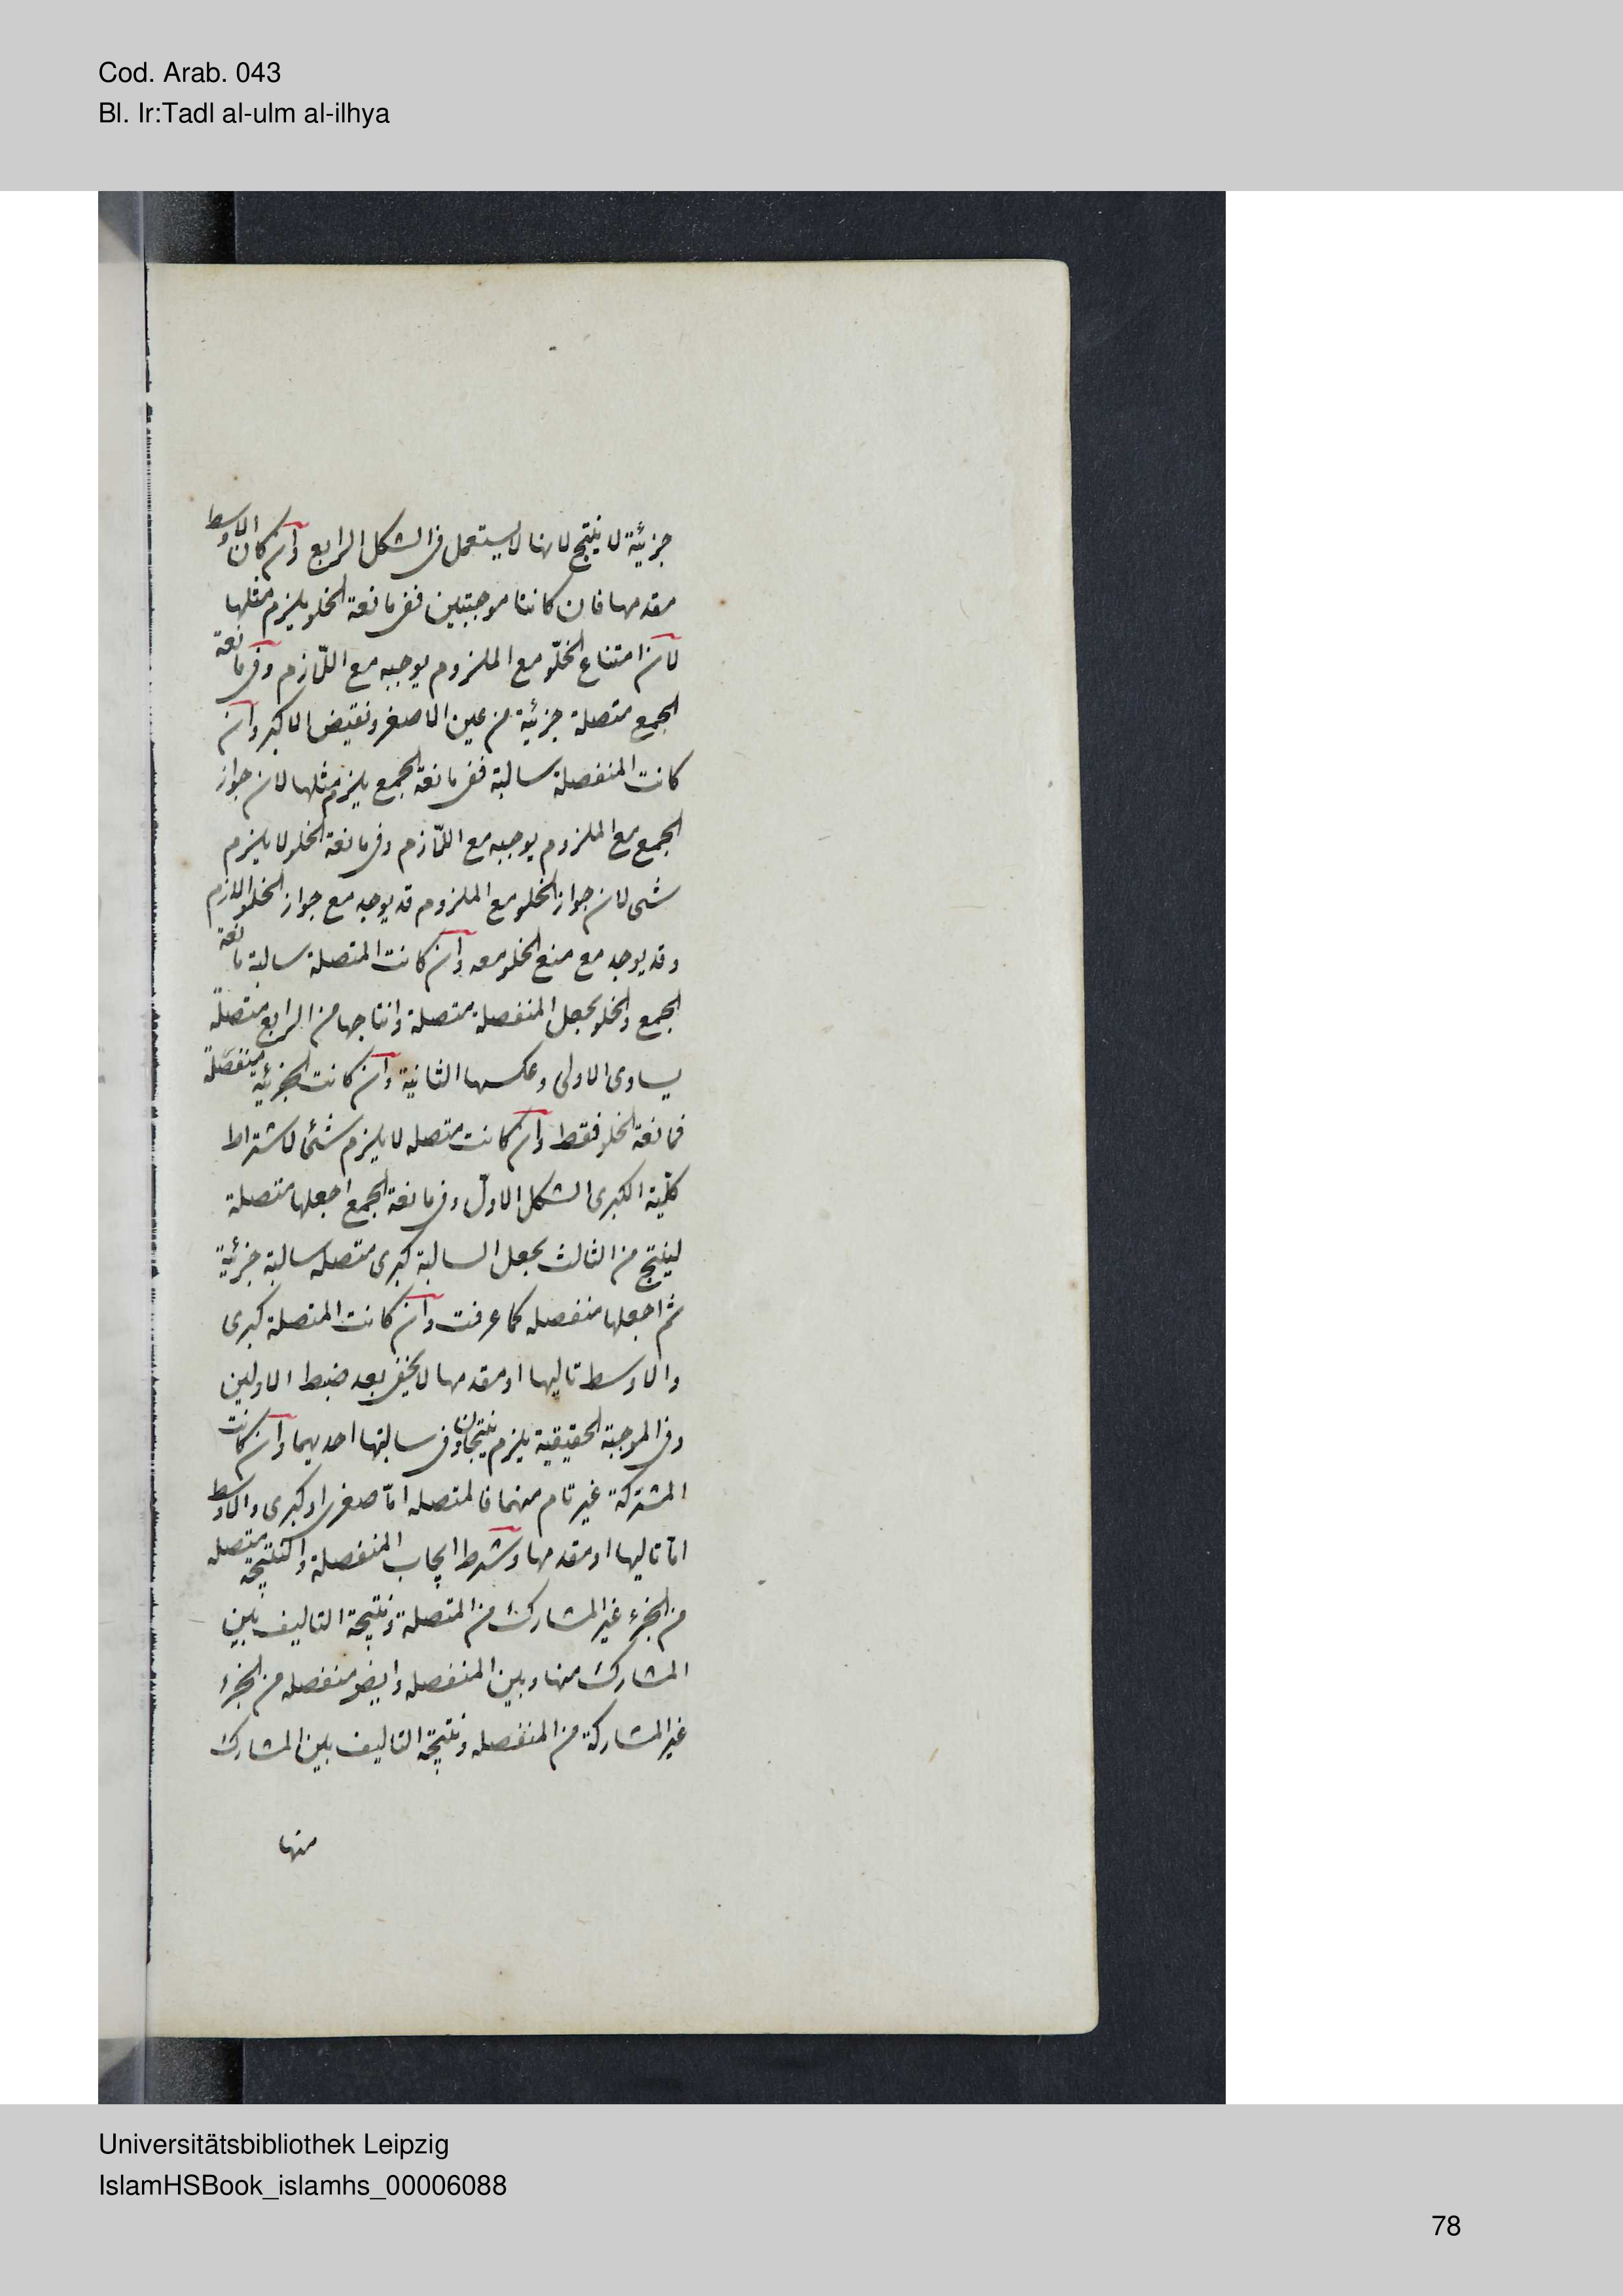 Cod. Arab. 043
Bl. Ir:Tadl al-ulm al-ilhya
جزئية لا ينتج لانها لا يستعمل فى الشكل الرابع وان كان الاوسط
مقدمها فان كانتا موجبتين ففى مانعة الخلو يلزم مثلها
لان امتناع الخلوّ مع الملزوم يوجبه مع اللّازم وفى مانعة
الجمع متصلة جزئية من عين الاصغر ونقيض الاكبر وان
كانت المنفصلة سالبة ففى مانعة الجمع يلزم مثلها لان جواز
الجمع مع الملزوم يوجبه مع اللّازم وفى مانعة الخلو لا يلزم
شى لان جواز الخلو مع الملزوم قد يوجد مع جواز الخلو اللازم
وقد يوجد مع منع الخلو معه وان كانت المتصلة سالبة مانعة
الجمع والخلو بجعل المنفصلة متصلة وانتاجها من الرابع متصلة
يساوى الاولى وعكسها الثانية وان كانت الجزئية منفصلة
فمانعة الخلو فقط وان كانت متصله لا يلزم شئ لاشتراط
كلّية الكبرى الشكل الاوّل وفى مانعة الجمع اجعلها متصلة
لينتج من الثالث بجعل السالبة كبرى متصله سالبة جزئية
ثم اجعلها منفصله كما عرفت وان كانت المتصلة كبرى
والاوسط تاليها او مقدمها لا يخفى بعد ضبط الاولين
وفى الموجبة الحقيقية يلزم نتيجتان وفى سالبتها احديهما وان كانت
المشتركة غير تام منهما فالمتصله امّا صغرى او كبرى والاوسط
امّا تاليها او مقدمها وشرط ايجاب المنفصلة والنتيجة متصله
من الجزء غير المشارك من المتصلة ونتيجة التاليف بين
المشارك منها وبين المنفصله وايضر منفصله من الجزء
غير المشاركة من المنفصله ونتيجة التاليف بين المشارك
منها
Universitätsbibliothek Leipzig
IslamHSBook_islamhs_00006088
78